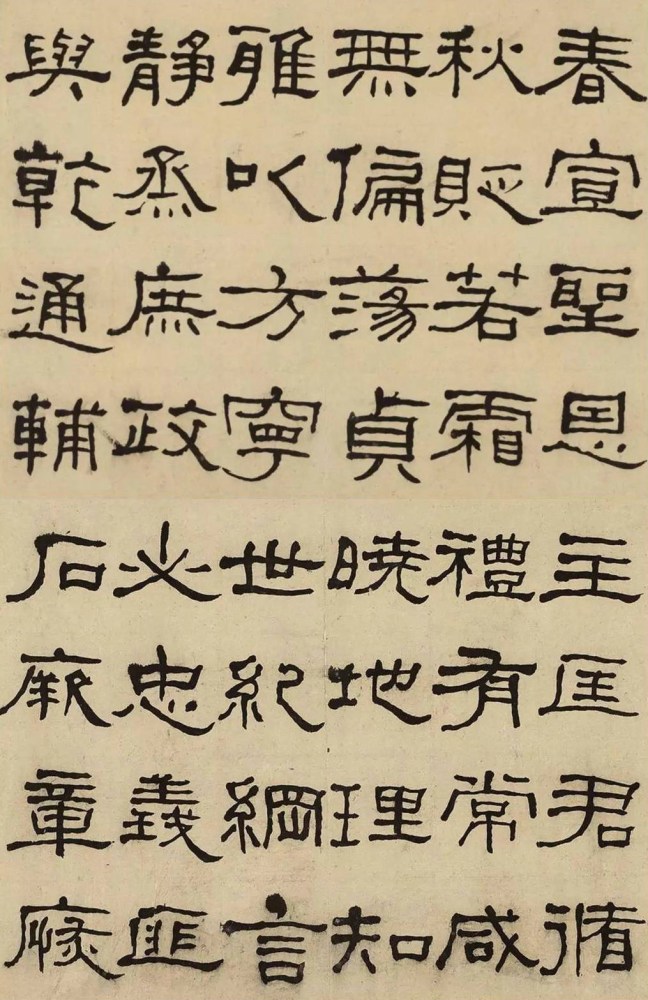 春宣聖恩
秋貶若霜
無偏蕩貞
雅以方寧
靜烝庶政
與乾通輔
主匡君循
禮有常咸
曉地理知
世紀綱言
必忠義匪
石厥章恢